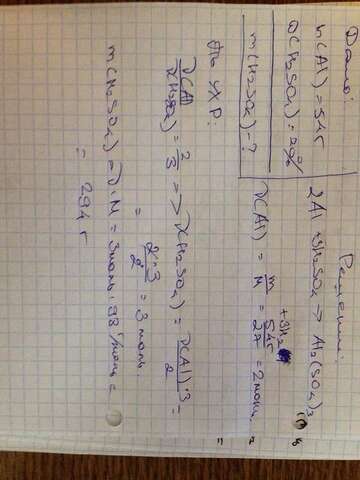 Дано:
m(Al) = 54 г
ω(H₂SO₄) = 20%
m(H₂SO₄) - ?
Решение:
2Al + 3H₂SO₄ → Al₂(SO₄)₃
+ 3H₂
ν(Al) = m/M = 54г/27 = 2 моль
По УХР:
ν(Al)/ν(H₂SO₄) = 2/3 => ν(H₂SO₄) = ν(Al)·3/2 =
= 2·3/2 = 3 моль.
m(H₂SO₄) = ν·M = 3моль·98г/моль =
= 294 г